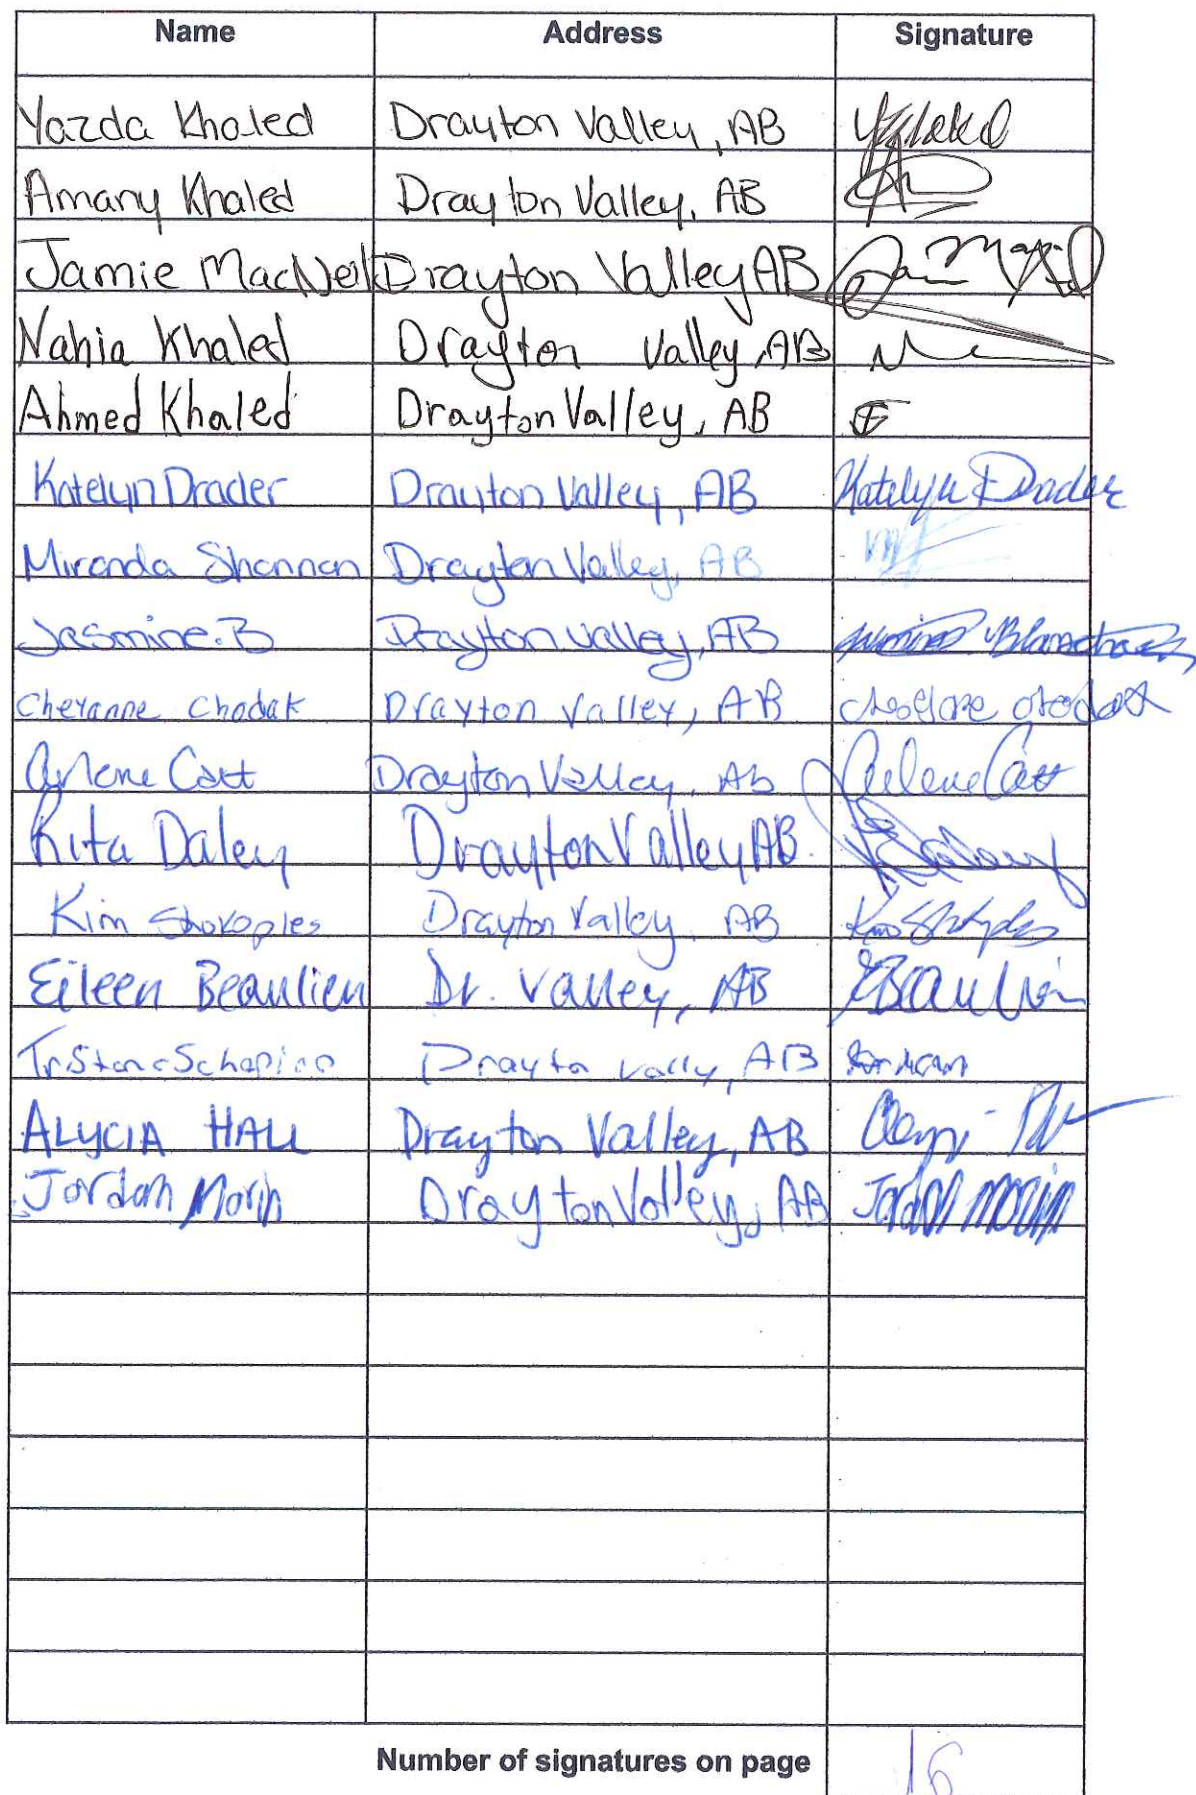 Name Address Signature
Yazda Khaled Drayton Valley, AB YKhaled
Amany Khaled Drayton Valley, AB
Jamie MacNeil Drayton Valley AB
Nahia Khaled Drayton Valley, AB
Ahmed Khaled Drayton Valley, AB
Katelyn Drader Drayton Valley, AB Katelyn Drader
Miranda Shannon Drayton Valley, AB
Jasmine.B Drayton valley, AB
Cheyanne Chodak Drayton Valley, AB
Arlene Catt Drayton Valley, Ab Arlene Catt
Rita Daley Drayton Valley AB. R Daley
Kim Drayton Valley, AB
Eileen Beaulieu Dr. Valley, AB EBeaulieu
Drayton Vally, AB
ALYCIA HALL Drayton Valley, AB
Jordan Morin Drayton Valley, AB Jordan morin
Number of signatures on page 16